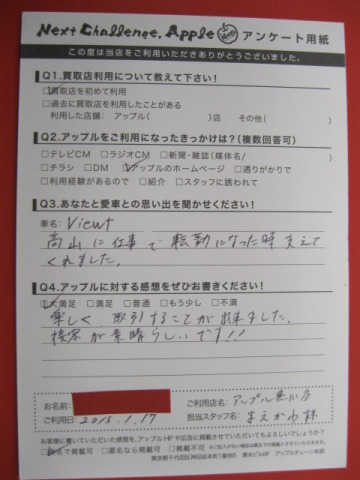 Next Challenge, Apple アンケート用紙
この度は当店をご利用いただきありがとうございました。
Q1.買取店利用について教えて下さい!
☑買取店を初めて利用
□過去に買取店を利用したことがある
利用した店舗: アップル( )店 その他( )
Q2.アップルをご利用になったきっかけは?(複数回答可)
□テレビCM □ラジオCM □新聞・雑誌(媒体名/ )
□チラシ □DM ☑アップルのホームページ □通りがかりで
□利用経験があるので □紹介 □スタッフに誘われて
Q3.あなたと愛車との思い出を聞かせください!
車名: Viewt
高山に仕事で転勤になった時支えて
くれました。
Q4.アップルに対する感想をぜひお書きください!
☑大満足 □満足 □普通 □もう少し □不満
楽しく 取引することが出来ました。
接客が素晴らしいです!!
お名前:
ご利用店名: アップル
ご利用日: 2015.1.17
担当スタッフ名: まえかわ様
お客様に書いていただいた感想を、アップルHPや広告に掲載させていただいてもよろしいでしょうか?
☑店名で掲載可 □匿名なら掲載可 □掲載不可
東京都千代田区神田岩本町1番地5 清水ビル6F アップルチェーン本部